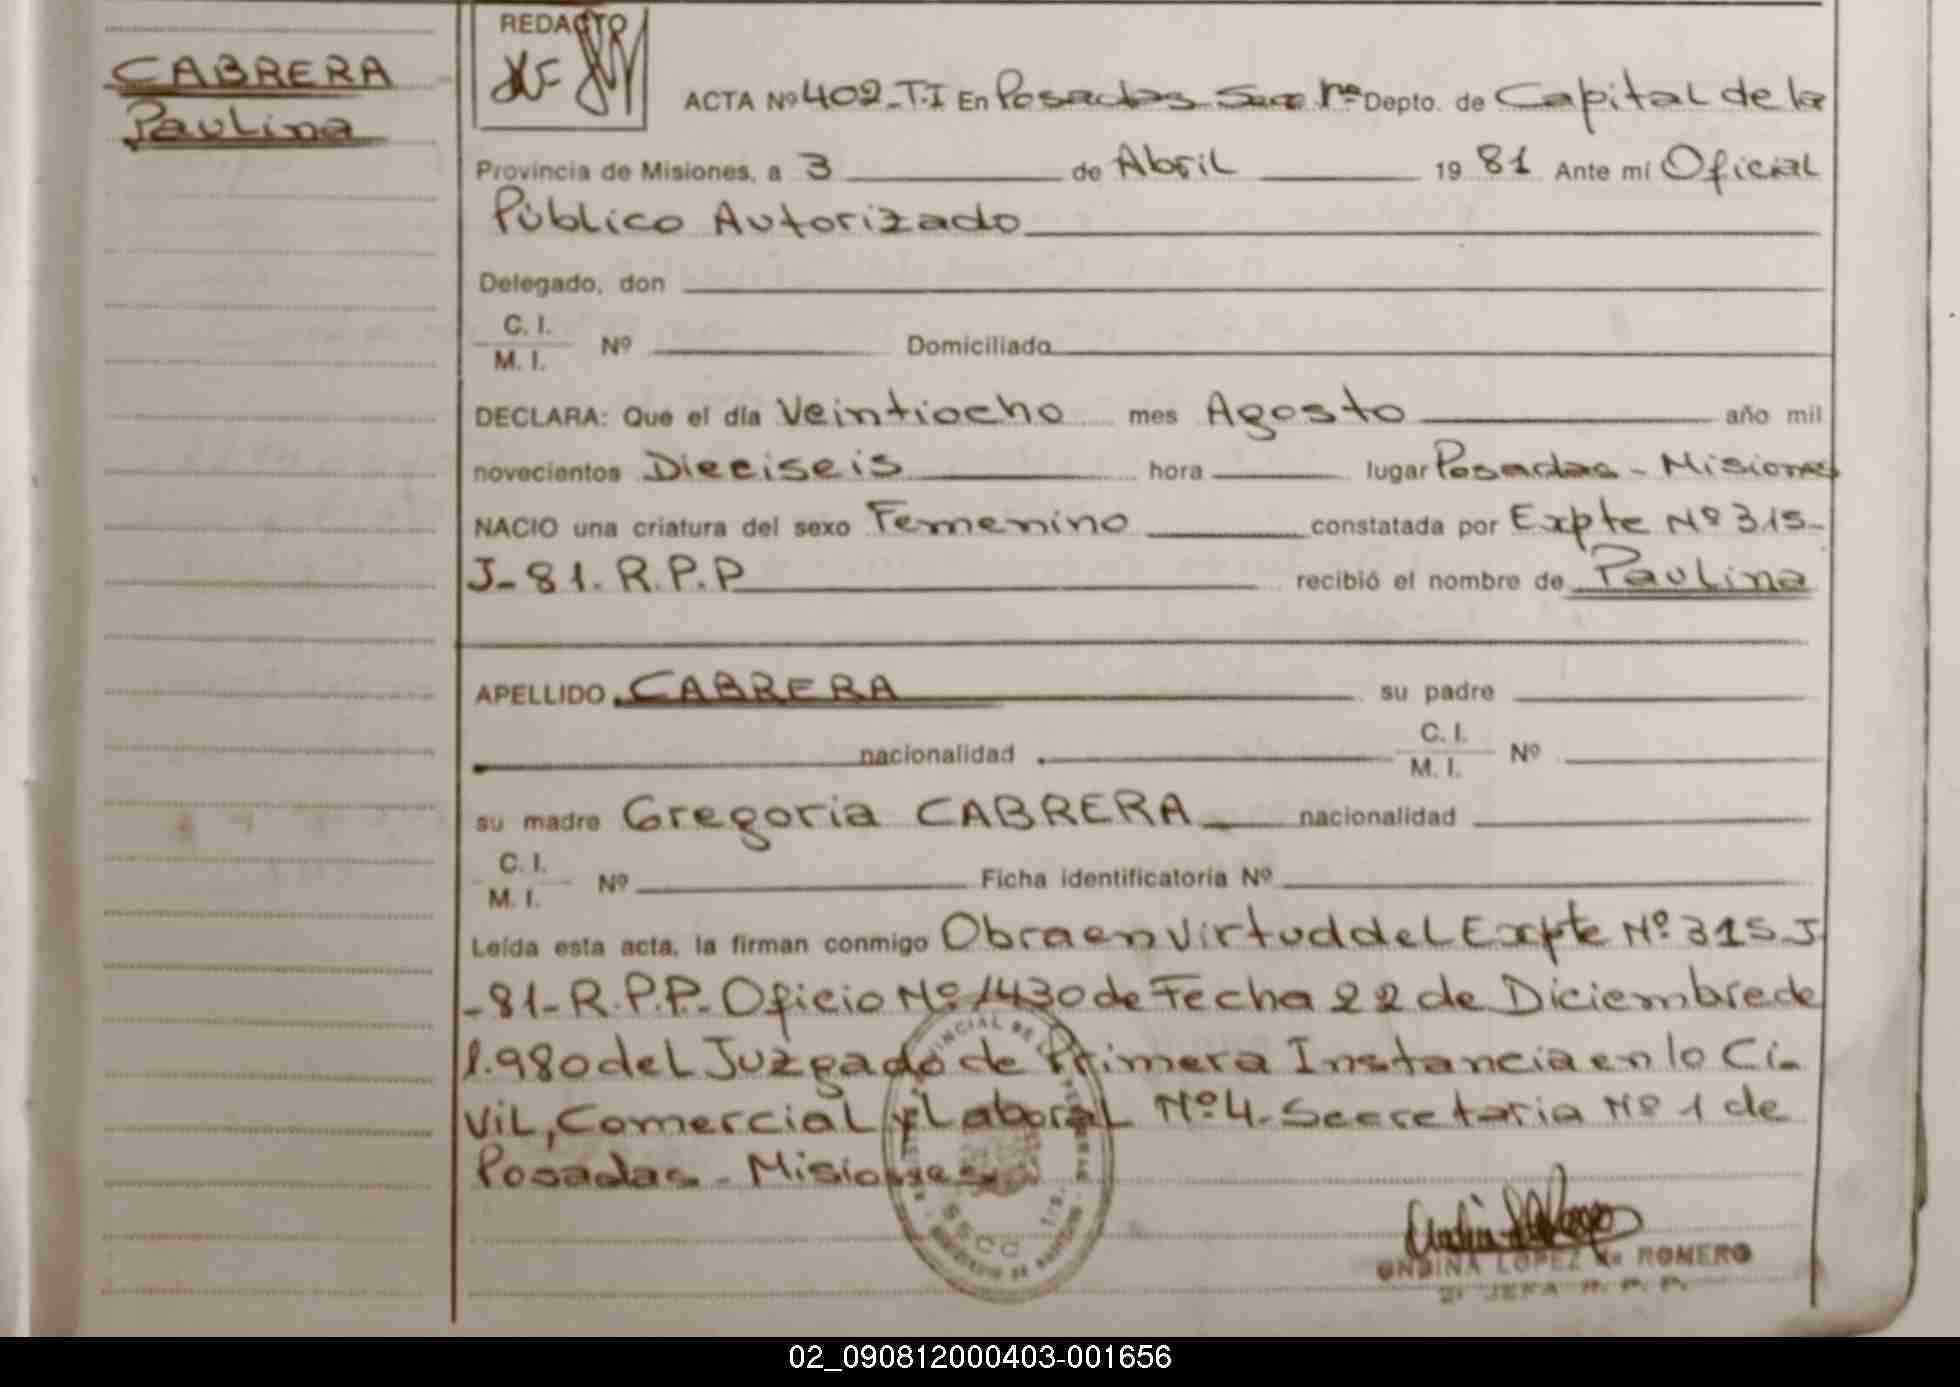 CABRERA
Paulina
REDACTO
ACTA Nº 402_T.I En Posadas Secc 1ª Depto. de Capital de la
Provincia de Misiones, a 3 de Abril 19 81 Ante mí Oficial
Público Autorizado
Delegado, don
C. I.
M. I. Nº Domiciliado
DECLARA: Que el día Veintiocho mes Agosto año mil
novecientos Dieciseis hora lugar Posadas - Misiones
NACIO una criatura del sexo Femenino constatada por Expte Nº 315-
J-81. R.P.P recibió el nombre de Paulina
APELLIDO CABRERA su padre
nacionalidad C. I.
M. I. Nº
su madre Gregoria CABRERA nacionalidad
C. I.
M. I. Nº Ficha identificatoria Nº
Leída esta acta, la firman conmigo Obra en virtud del Expte Nº 315_J
-81-R.P.P.-Oficio Nº 1430 de Fecha 22 de Diciembre de
1.980 del Juzgado de Primera Instancia en lo Ci-
vil, Comercial y Laboral Nº 4-Secretaria Nº 1 de
Posadas - Misiones
ONDINA LOPEZ de ROMERO
2ª JEFA R. P. P.
02_090812000403-001656